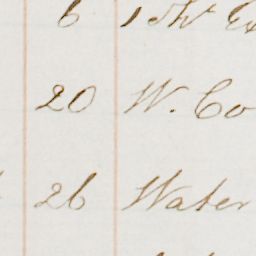 6
20 W. Co
26 Water